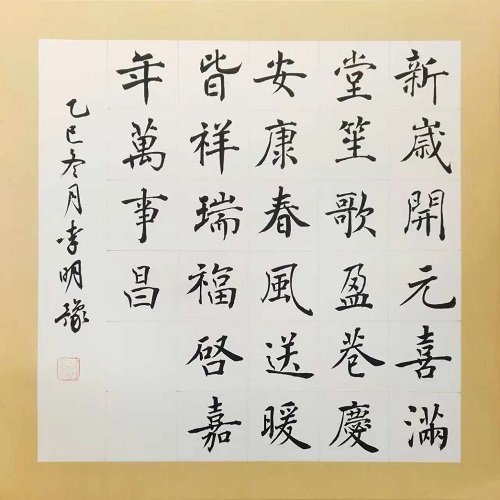 新歲開元喜滿
堂笙歌盈巷慶
安康春風送暖
皆祥瑞福啓嘉
年萬事昌
乙巳冬月李明豫